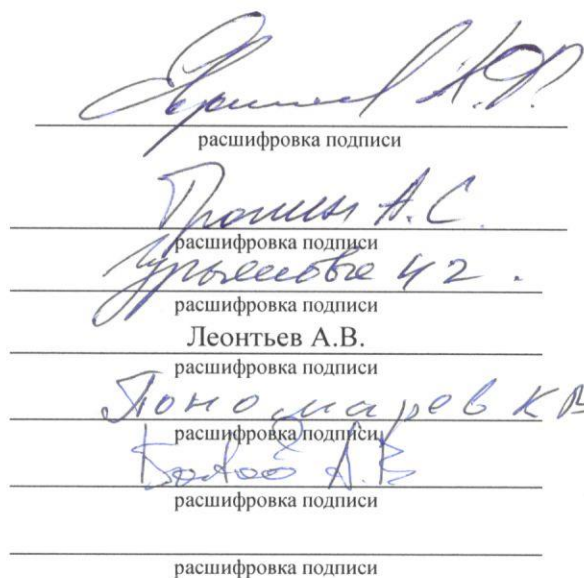 А.Ф.
расшифровка подписи
Пронин А.С.
расшифровка подписи
расшифровка подписи
Леонтьев А.В.
расшифровка подписи
Пономарев КВ
расшифровка подписи
А.В
расшифровка подписи
расшифровка подписи